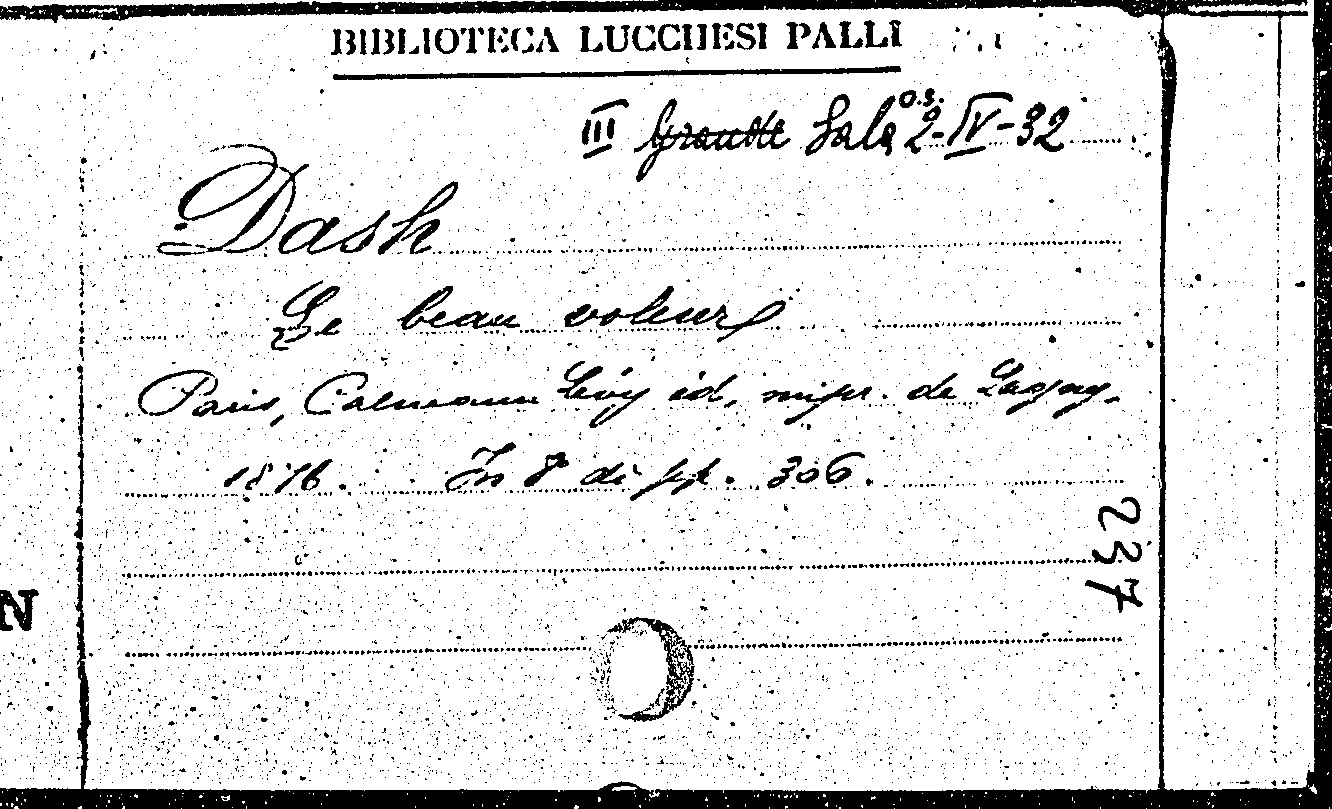 BIBLIOTECA LUCCHESI PALLI
III Grande Sala O.S. 2-IV-32
Dash
Le beau voleur
Paris, Calmann Lévy éd., impr. de Lagny,
1876. In 8° di pp. 306.
237
N